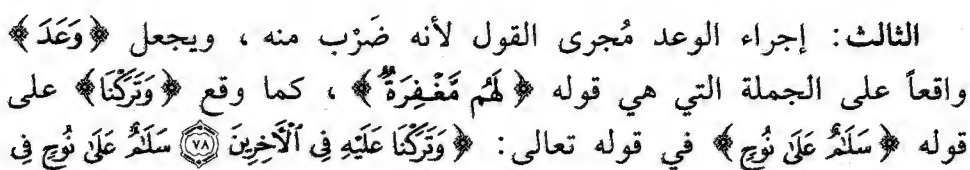 الثالث: إجراء الوعد مُجرى القول لأنه ضَرْب منه ، ويجعل ﴿وَعَدَ﴾
واقعاً على الجملة التي هي قوله ﴿لَهُم مَّغْفِرَةٌ﴾ ، كما وقع ﴿وَتَرَكْنَا﴾ على
قوله ﴿سَلَٰمٌ عَلَىٰ نُوحٍ﴾ في قوله تعالى: ﴿وَتَرَكْنَا عَلَيْهِ فِى ٱلْأَخِرِينَ ٧٨ سَلَٰمٌ عَلَىٰ نُوحٍ فِى